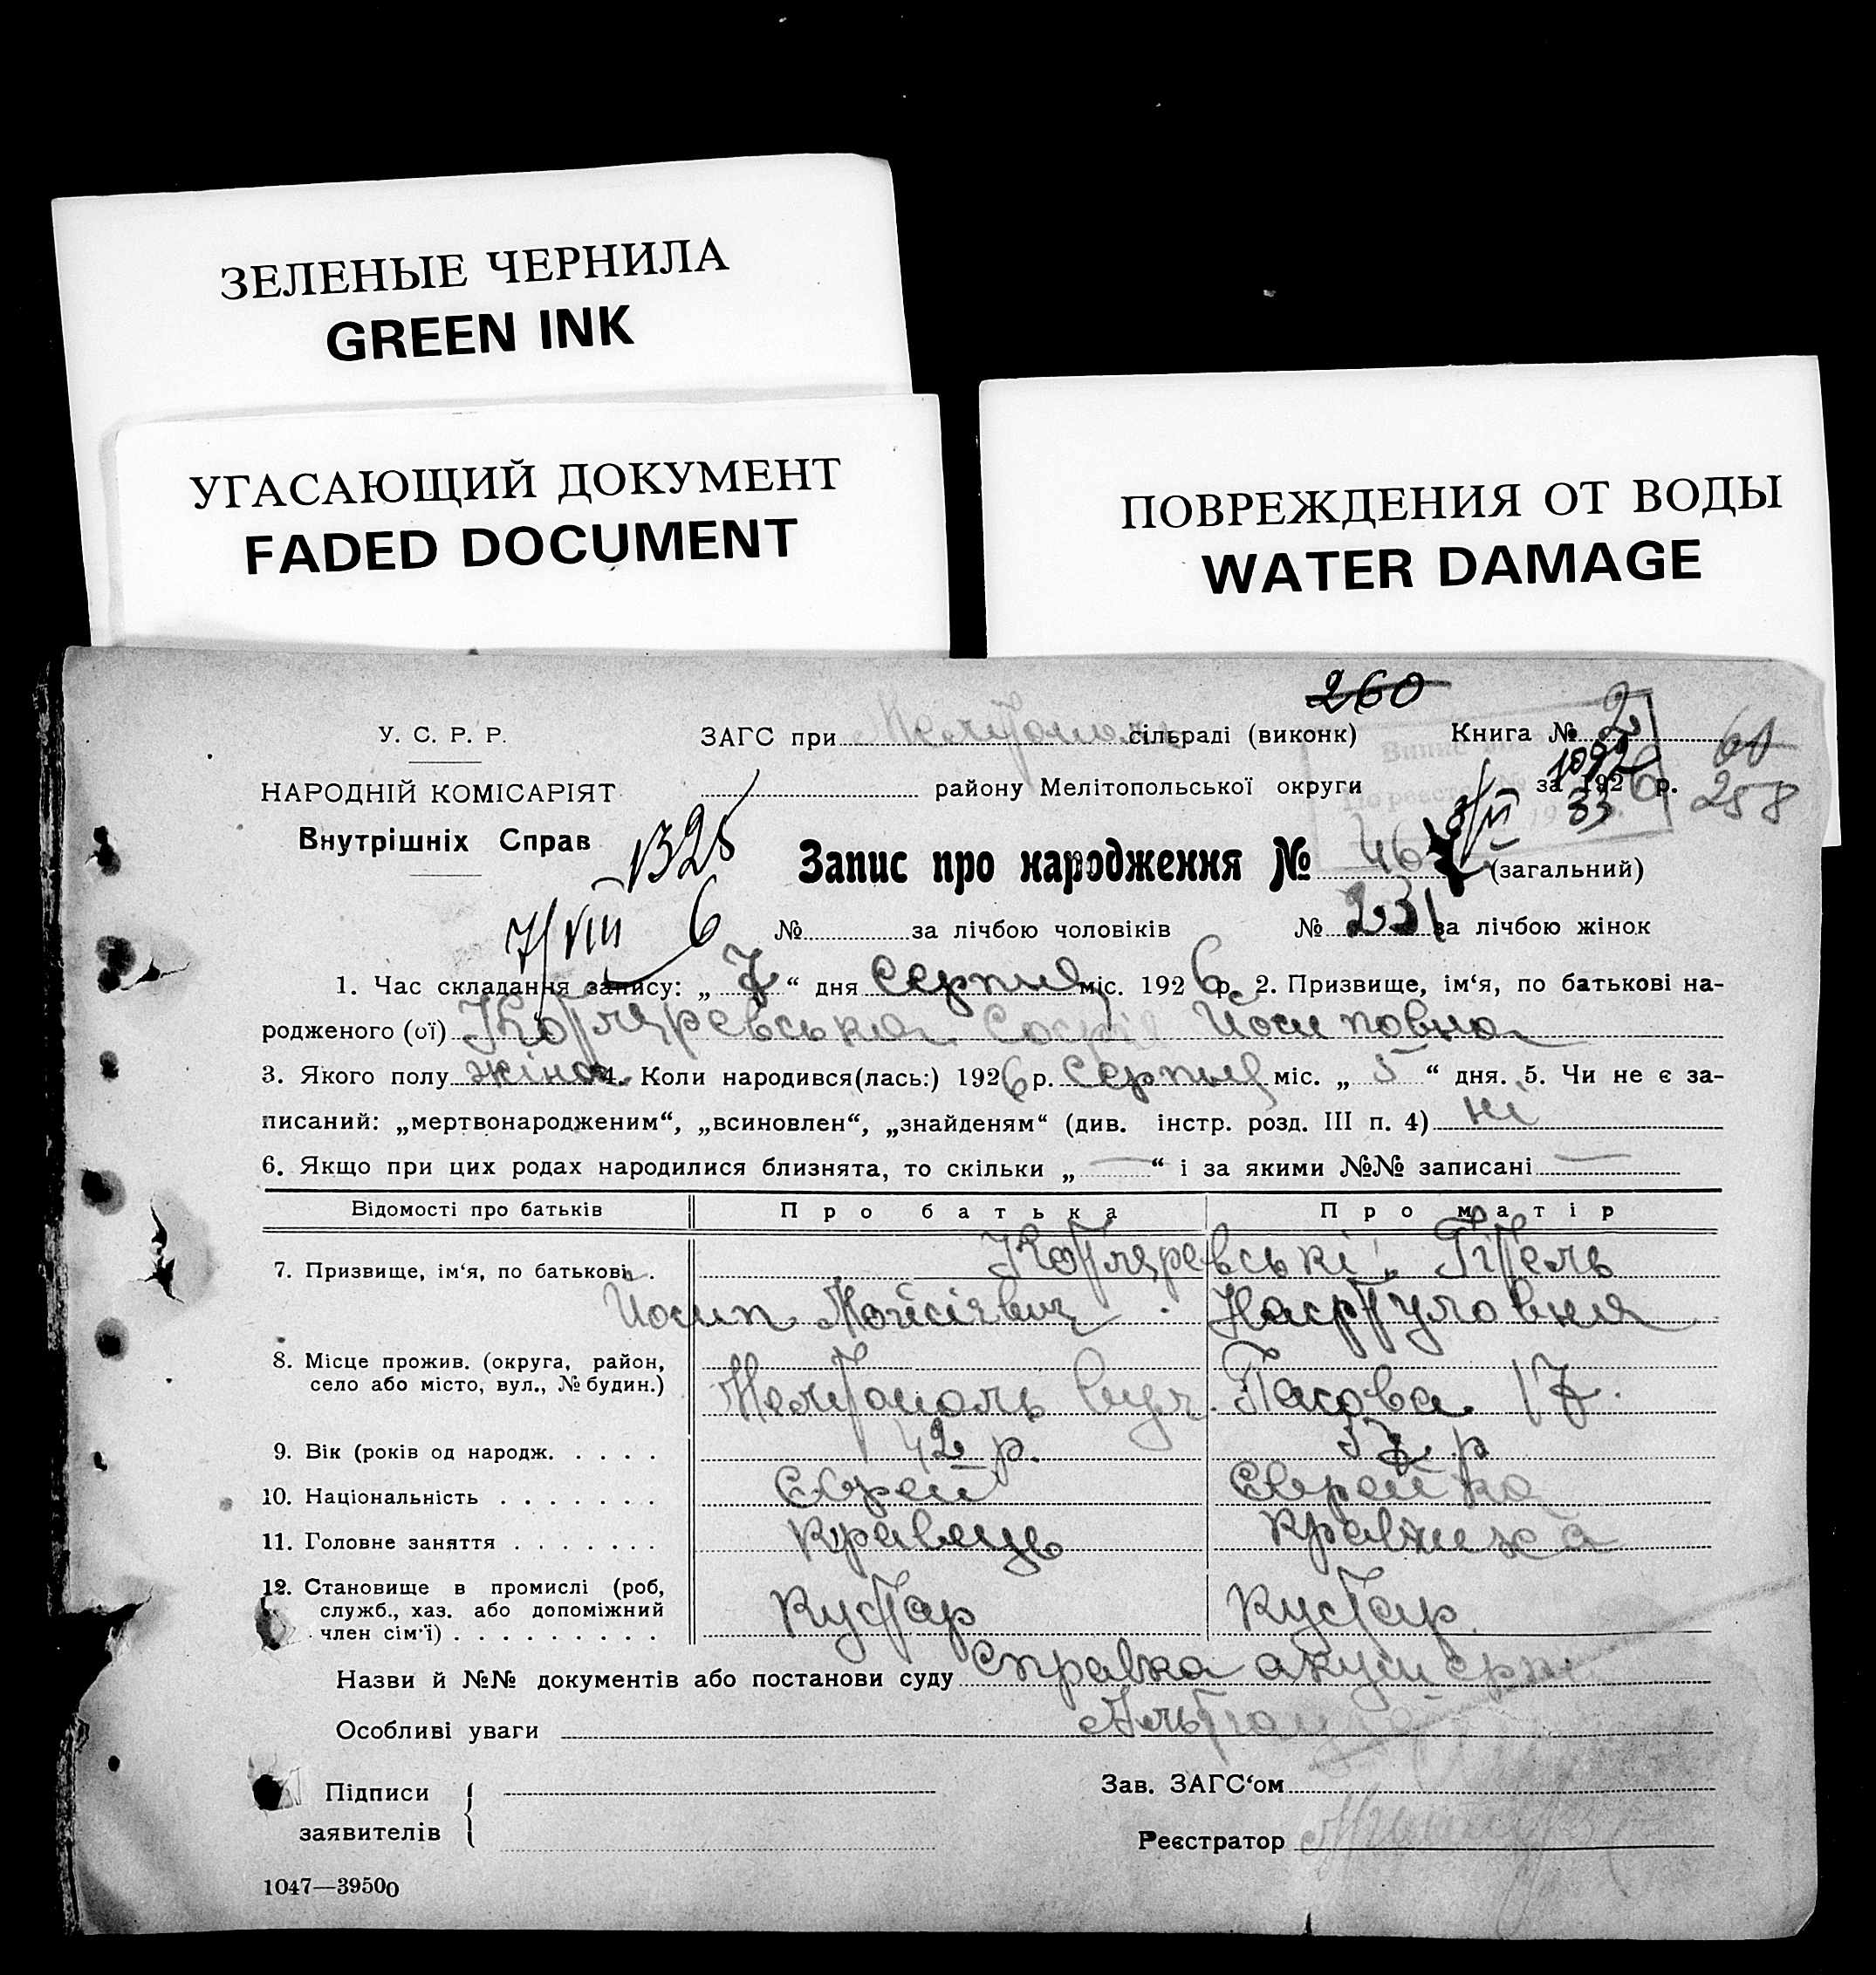 ЗЕЛЕНЫЕ ЧЕРНИЛА
GREEN INK
УГАСАЮЩИЙ ДОКУМЕНТ
FADED DOCUMENT
ПОВРЕЖДЕНИЯ ОТ ВОДЫ
WATER DAMAGE
260
У. С. Р. Р. ЗАГС при сільраді (виконк) Книга № 2
60
НАРОДНІЙ КОМІСАРІЯТ району Мелітопольської округи за 1926 р. 258
Внутрішніх Справ 1325 Запис про народження № 46 (загальний)
7/VIII 6 № за лічбою чоловіків № 231 за лічбою жінок
1. Час складання запису: „ 7 “ дня Серпня міс. 1926 р. 2. Призвище, ім‘я, по батькові на-
родженого (ої) Котляревська Йосиповна
3. Якого полу жіноч. 4. Коли народився(лась:) 1926 р. Серпня міс. „ 5 “ дня. 5. Чи не є за-
писаний: „мертвонародженим“, „всиновлен“, „знайденям“ (див. інстр. розд. III п. 4) ні
6. Якщо при цих родах народилися близнята, то скільки „ — “ і за якими №№ записані —
Відомості про батьків Про батька Про матір
7. Призвище, ім‘я, по батькові . Котляревські Гітель
Йосип Мойсієвич Насртуловня
8. Місце прожив. (округа, район,
село або місто, вул., № будин.) Мелітополь вул. 17.
9. Вік (років од народж. . . . . 42 р. 37 р
10. Національність . . . . . . . Єврей Єврейка
11. Головне заняття . . . . . . . Кравець Кравчиха
12. Становище в промислі (роб,
служб., хаз. або допоміжний Кустар Кустар
член сім‘ї) . . . . . . . . .
Назви й №№ документів або постанови суду Справка акушерки
Особливі уваги
Підписи Зав. ЗАГС‘ом
заявителів Реєстратор
1047—39500